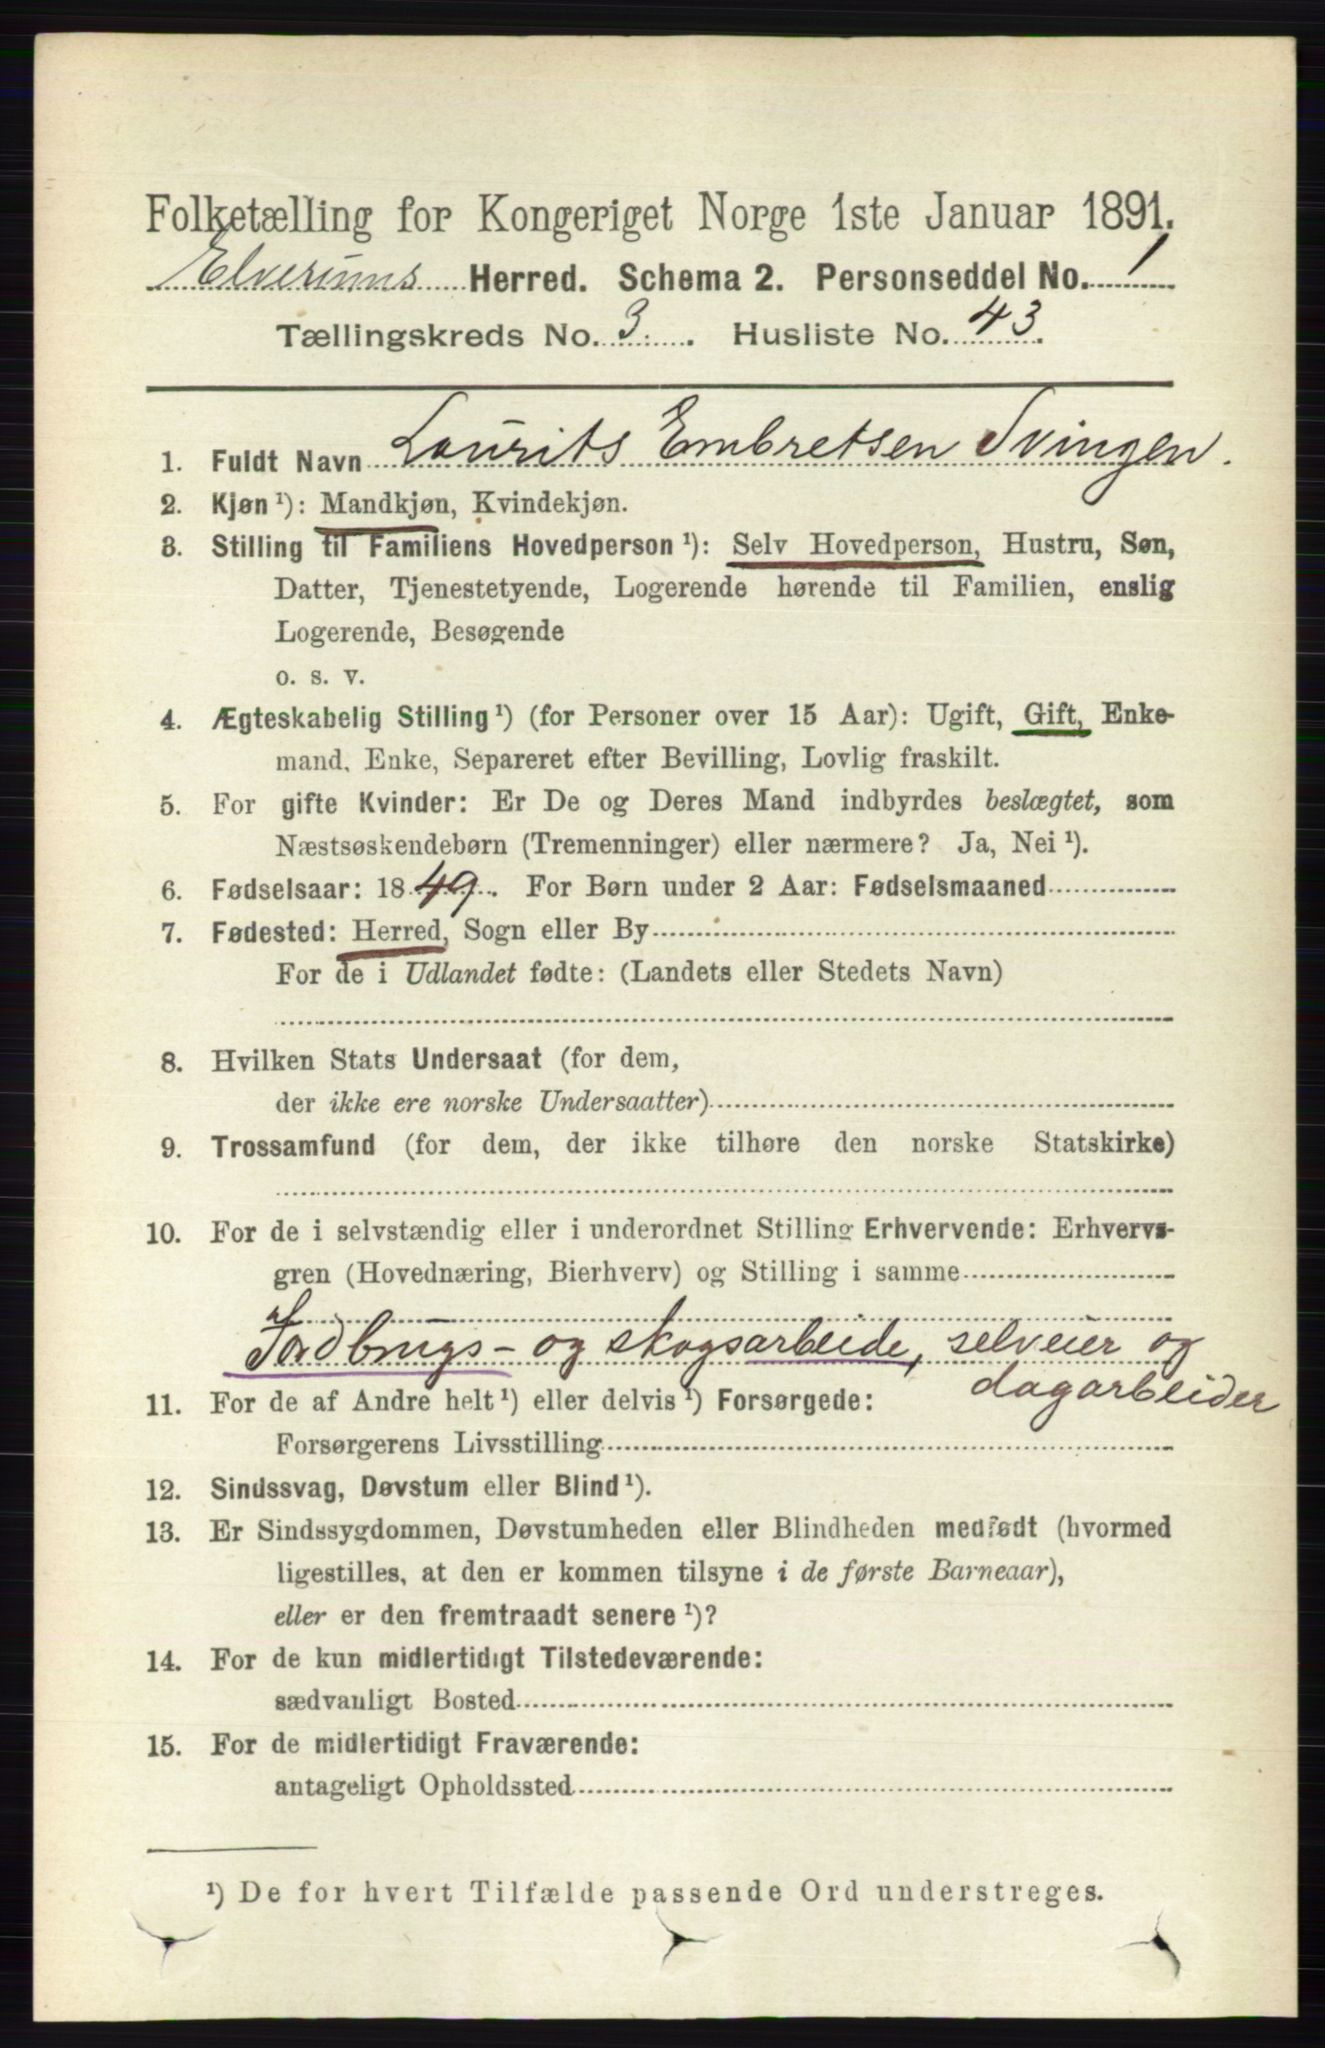 Folketælling for Kongeriget Norge 1ste Januar 1891.
Elverums Herred. Schema 2. Personseddel No. 1
Tællingskreds No. 3. Husliste No. 43.
1. Fuldt Navn Laurits Embretsen Svingen.
2. Kjøn ¹): Mandkjøn, Kvindekjøn.
3. Stilling til Familiens Hovedperson ¹): Selv Hovedperson, Hustru, Søn,
Datter, Tjenestetyende, Logerende hørende til Familien, enslig
Logerende, Besøgende
o. s. v.
4. Ægteskabelig Stilling ¹) (for Personer over 15 Aar): Ugift, Gift, Enke-
mand, Enke, Separeret efter Bevilling, Lovlig fraskilt.
5. For gifte Kvinder: Er De og Deres Mand indbyrdes beslægtet, som
Næstsøskendebørn (Tremenninger) eller nærmere? Ja, Nei ¹).
6. Fødselsaar: 1849. For Børn under 2 Aar: Fødselsmaaned
7. Fødested: Herred, Sogn eller By
For de i Udlandet fødte: (Landets eller Stedets Navn)
8. Hvilken Stats Undersaat (for dem,
der ikke ere norske Undersaatter)
9. Trossamfund (for dem, der ikke tilhøre den norske Statskirke)
10. For de i selvstændig eller i underordnet Stilling Erhvervende: Erhvervs-
gren (Hovednæring, Bierhverv) og Stilling i samme
Jordbrugs- og skogsarbeide, selveier og
dagarbeider
11. For de af Andre helt ¹) eller delvis ¹) Forsørgede:
Forsørgerens Livsstilling
12. Sindssvag, Døvstum eller Blind ¹).
13. Er Sindssygdommen, Døvstumheden eller Blindheden medfødt (hvormed
ligestilles, at den er kommen tilsyne i de første Barneaar),
eller er den fremtraadt senere ¹)?
14. For de kun midlertidigt Tilstedeværende:
sædvanligt Bosted
15. For de midlertidigt Fraværende:
antageligt Opholdssted
¹) De for hvert Tilfælde passende Ord understreges.